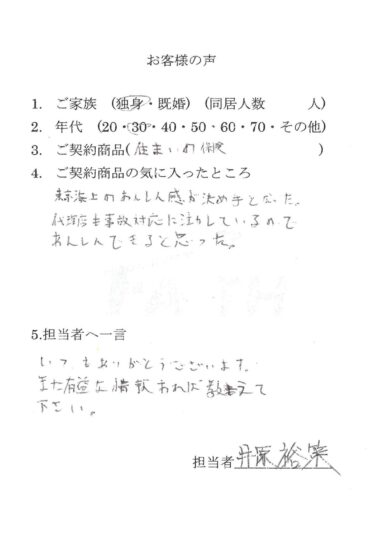 お客様の声
1. ご家族 (独身・既婚) (同居人数 人)
2. 年代 (20・30・40・50・60・70・その他)
3. ご契約商品(住まいの保険 )
4. ご契約商品の気に入ったところ
東京海上のあんしん感が決め手となった。
代理店も事故対応に注力しているので
あんしんできると思った。
5.担当者へ一言
いつもありがとうございます。
また有益な情報あれば教えて
下さい。
担当者 井原